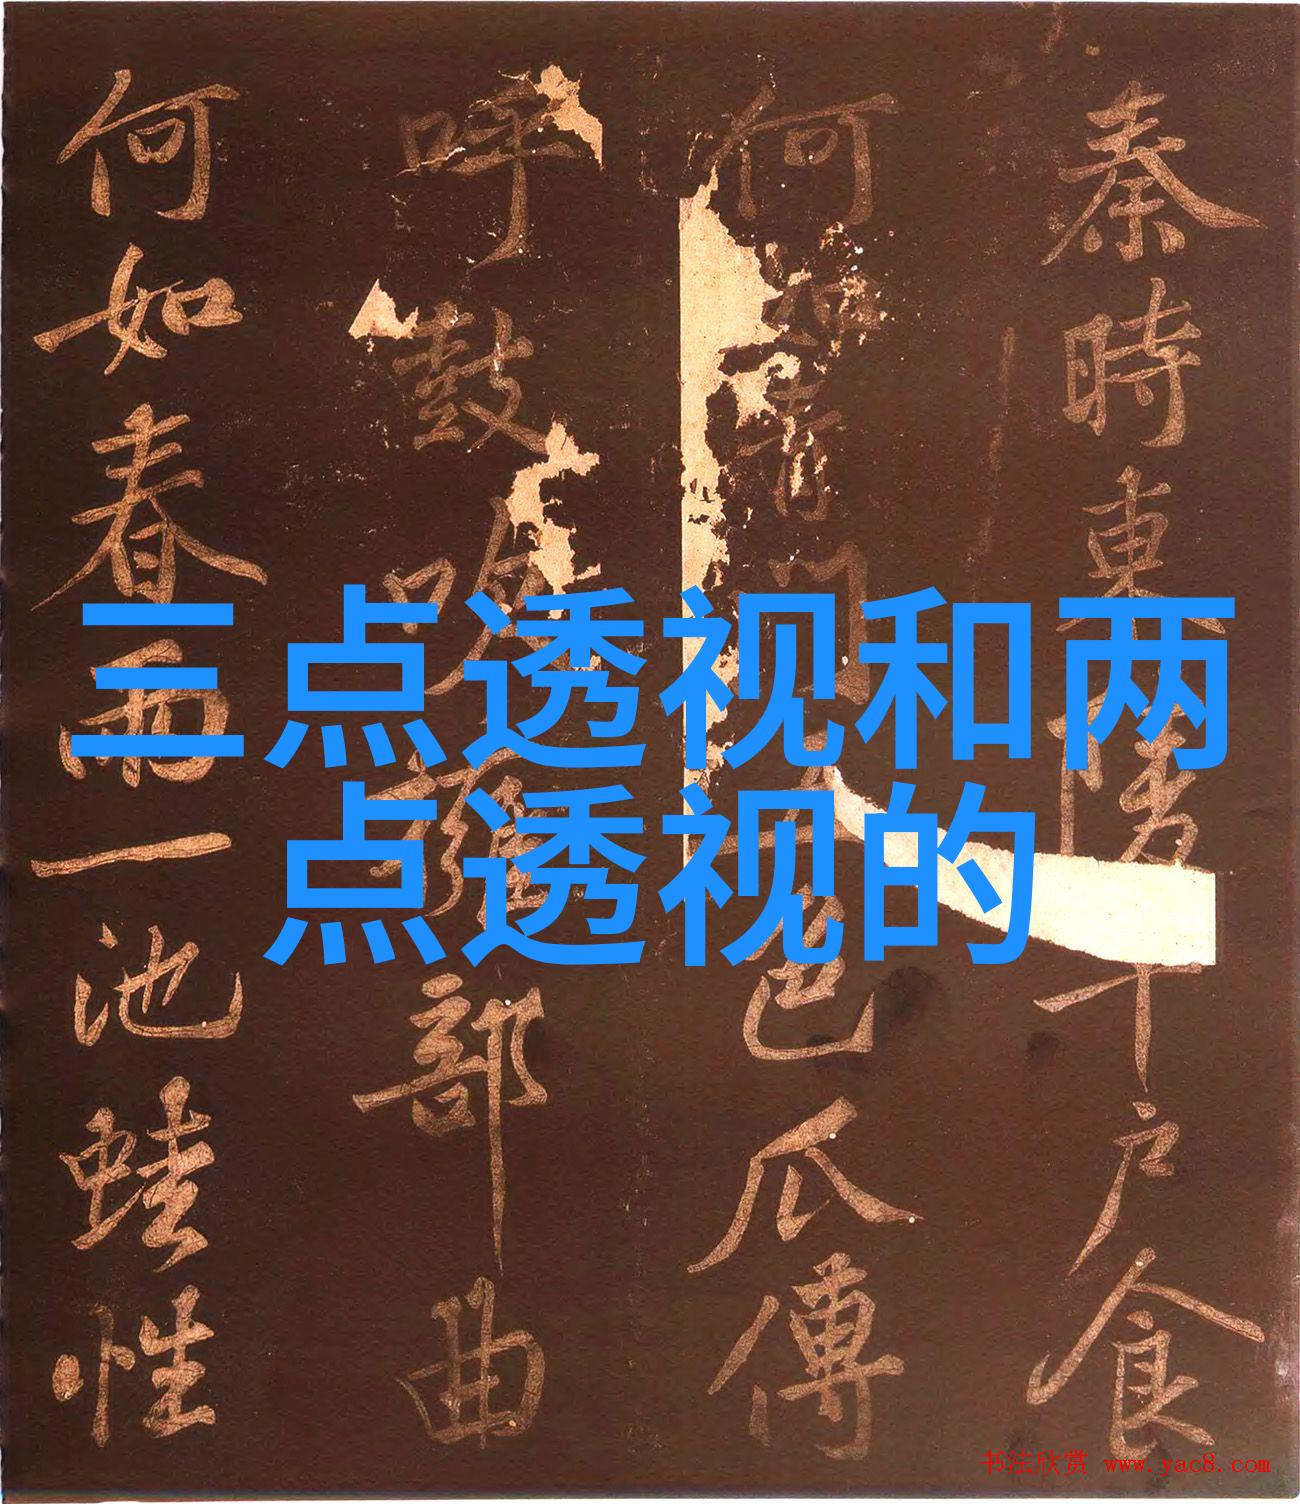 三点透视和两
点透视的
秦時東陵千戶食
何如青門色瓜傳
呼鼓吹擁部曲
何如春雨一池蛙性
书法欣赏 www.yac8.com